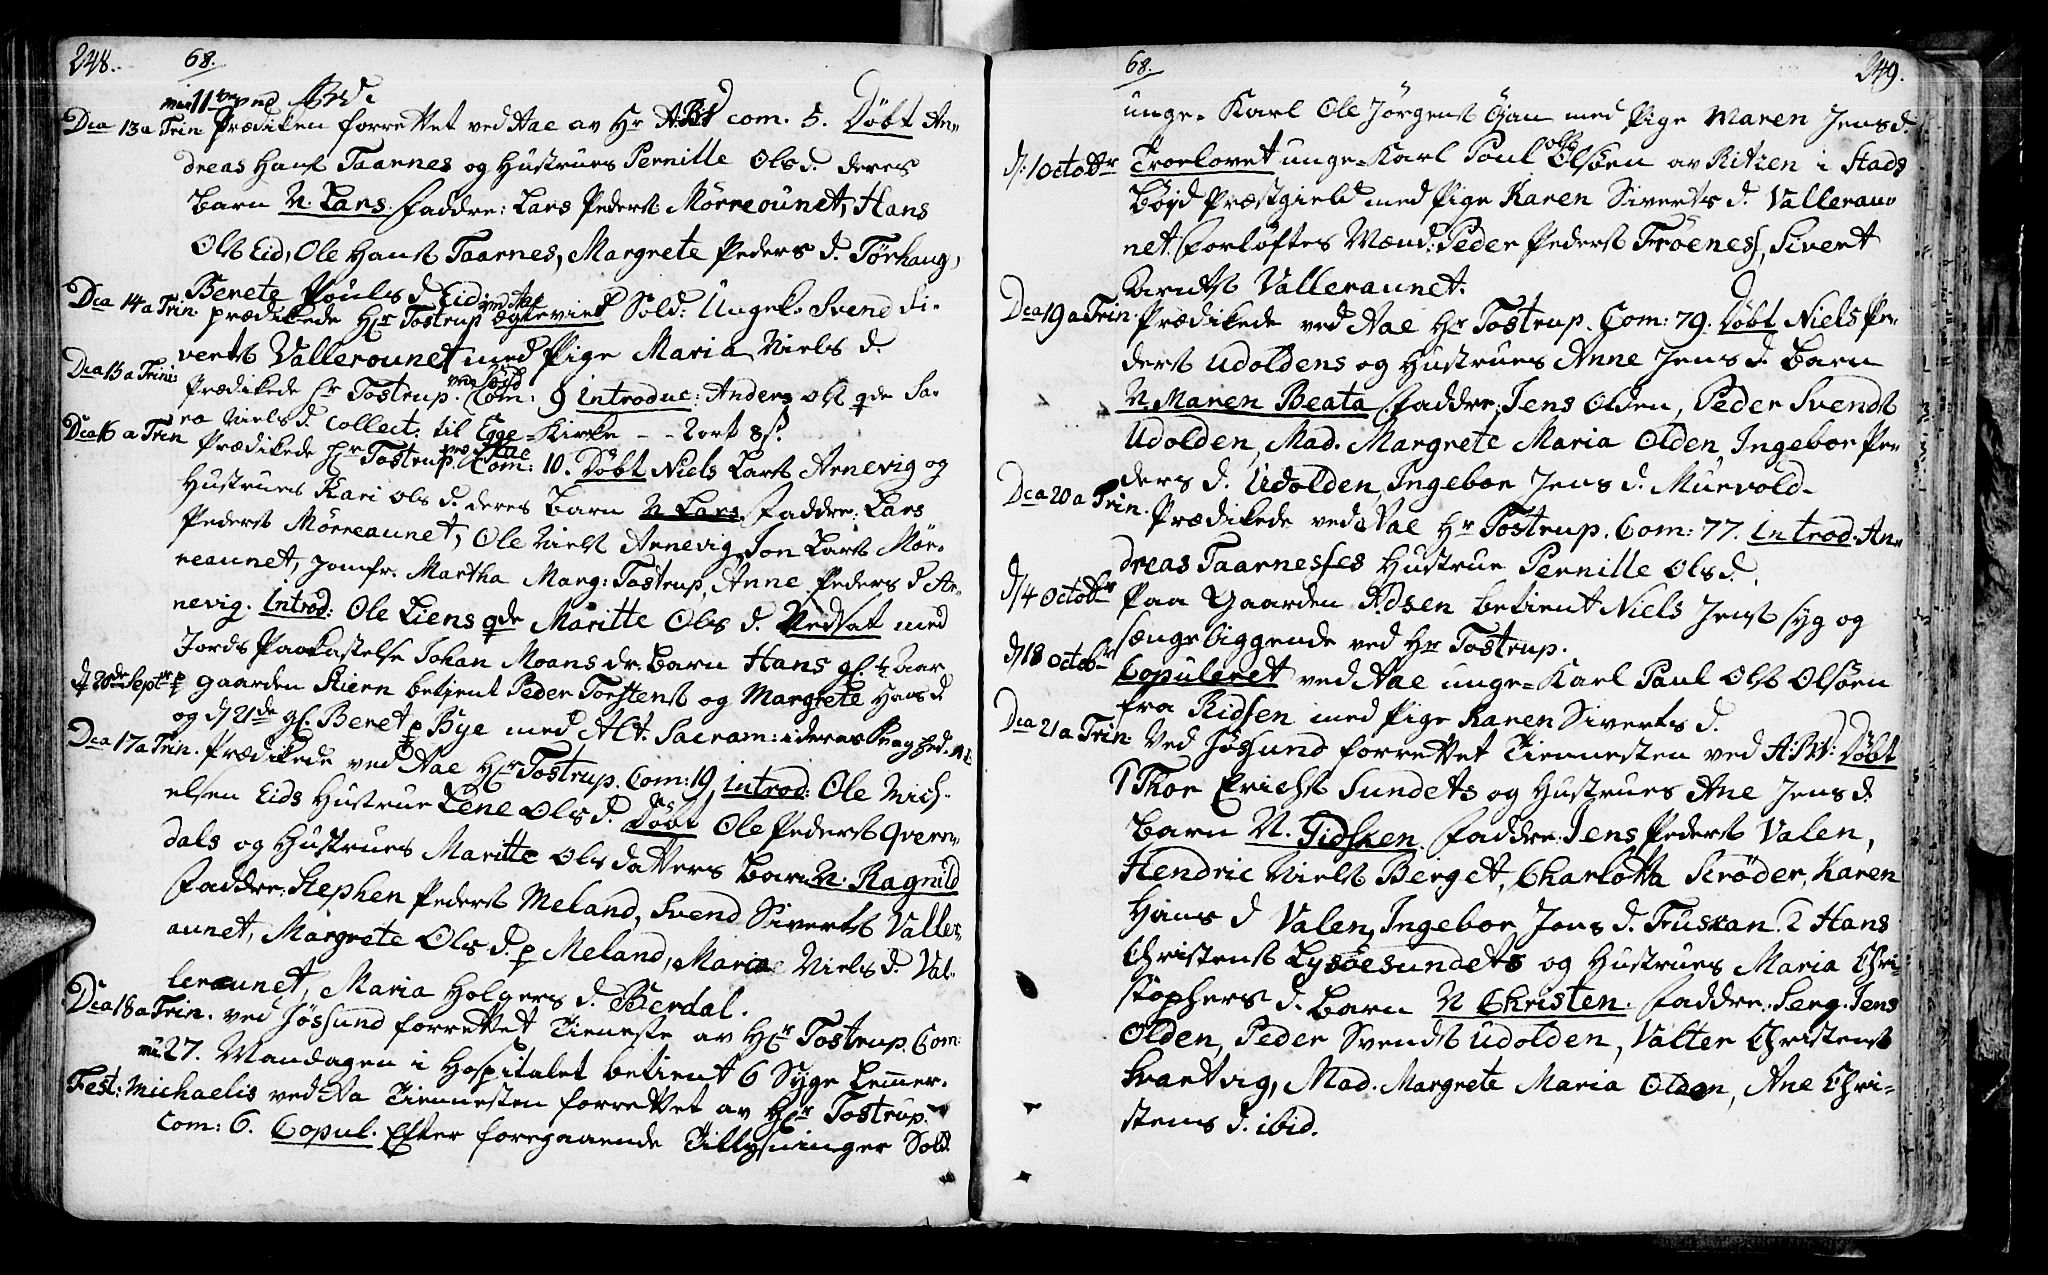 248.
68.
Dca 13 a Trin Prædiken forrettet ved Aae av Hr com. 5. Døbt An-
dreas Hans Taarnes og Hustrues Pernille Olsd. deres
Barn N. Lars. Faddre: Lars Peders Mørreounet, Hans
Ols Eid, Ole Hans Taarnes, Margrete Peders d. Tørhaug,
Berete Pouls d Eid
Dca 14 a Trin. prædikede Hr Tostrup ved Aae Egteviet Sold: Ungek. Svend Si-
verts Vallerounet med Pige Maria Niels d.
Dca 15 a Trini: Prædikede Hr Tostrup. Com: 9 introduc: Anders Ols qde Sa-
ra Niels d. Collect: til Egge-Kirke - - 2 ort 8 s.
Dca 16 a Trin Prædikede Hr Tostrup ved Aae Com: 10. Døbt Niels Lars Arnevig og
Hustrues Kari Ols d. deres Barn N Lars. Faddre: Lars
Peders Mørreaunet, Ole Niels Arnevig, Jon Lars Mør-
reaunet, Jomfr. Martha Marg: Tostrup, Anne Peders d Ar-
nevig. Introd: Ole Liens qde Maritte Ols d. Nedsat med
Jords Paakastelse Johan Moans dr. Barn Hans gl. ½ Aar
d 20de Septr p gaarden Kiern betient Peder Torstens og Margrete Hans d
og d 21de gl. Beret p Bye med Alt: Sacram: i deras
Dca 17 a Trin. Prædikede ved Aae Hr Tostrup. Com: 19, introd: Ole Mich-
elsen Eids Hustrue Lene Ols d. Døbt Ole Peders Qvern-
dals og Hustrues Maritte Ols datters Barn N. Ragnild
Faddre: Stephen Peders Meland, Svend Siverts Valler-
aunet, Margrete Ols d. p Meland, Maria Niels d. Val-
leraunet, Maria Holgers d. Berdal.
Dca 18 a Trin. ved Jøssund forrettet Tieneste av Hr Tostrup. Com:
27. Mandagen i Hospitalet betient 6 Syge Lemmer.
Fest: Michaelis ved Aa Tiennesten forrettet av Hr Tostrup.
Com: 6. Copul. Efter foregaaende Tillysninger Sold
68.
249.
unge-Karl Ole Jørgens Øjan med Pige Maren Jens d.
d. 1 Octobr Troelovet unge-Karl Poul Ols Olsøen av Ritzen i Stads
Bøjd Præstgield med Pige Karen Siverts d. Vallerau-
net. Forløftes Mænd: Peder Peders Frøeness, Sivert
Arnts Valleraunet.
Dca 19 a Trin. Prædikede ved Aae Hr Tostrup. Com: 79. Døbt Niels Pe-
ders Udoldens og Hustrues Anne Jens d. Barn
N. Maren Beata Faddre: Jens Olden, Peder Svends
Udolden, Mad. Margrete Maria Olden, Ingebor Pe-
ders d. Udolden, Ingebor Jens d. Murvold.
Dca 20 a Trin. Prædikede ved Aae Hr Tostrup. Com: 77. introd. An-
dreas Taarnesses Hustrue Pernille Ols d.
d 4 Octobr Paa Gaarden Adsen betient Niels Jens syg og
sængeliggende ved Hr Tostrup.
d 18 Octobr Copuleret ved Aae unge-Karl Paul Ols Olsøen
fra Ridsen med Pige Karen Siverts d.
Dca 21 a Trin. Ved Jøssund forrettet Tiennesten ved Døbt
1 Thor Erichs Sundets og Hustrues Ane Jens d.
Barn N. Gidsken. Faddre: Jens Peders Valen,
Hendric Niels Berget, Charlotta Scrøder, Karen
Hans d Valen, Ingebor Jens d. Fuskan. 2 Hans
Christens Lysøesundets og Hustrues Maria Chri-
stophers d. Barn N Christen. Faddre: Serg. Jens
Olden, Peder Svends Udolden, Valter Christens
Svartvig, Mad. Margrete Maria Olden, Ane Chri-
stens d. ibid.